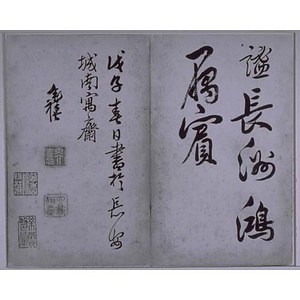 謐長洲鴻
屬賓
戊子春日書於長安
城南寓齋